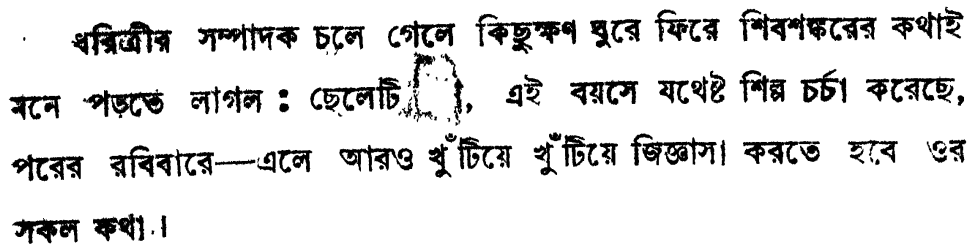 ধরিত্রীর সম্পাদক চলে গেলে কিছুক্ষণ ঘুরে ফিরে শিবশঙ্করের কথাই
মনে পড়তে লাগল : ছেলেটি , এই বয়সে যথেষ্ট শিল্প চর্চা করেছে,
পরের রবিবারে—এলে আরও খুঁটিয়ে খুঁটিয়ে জিজ্ঞাসা করতে হবে ওর
সকল কথা।